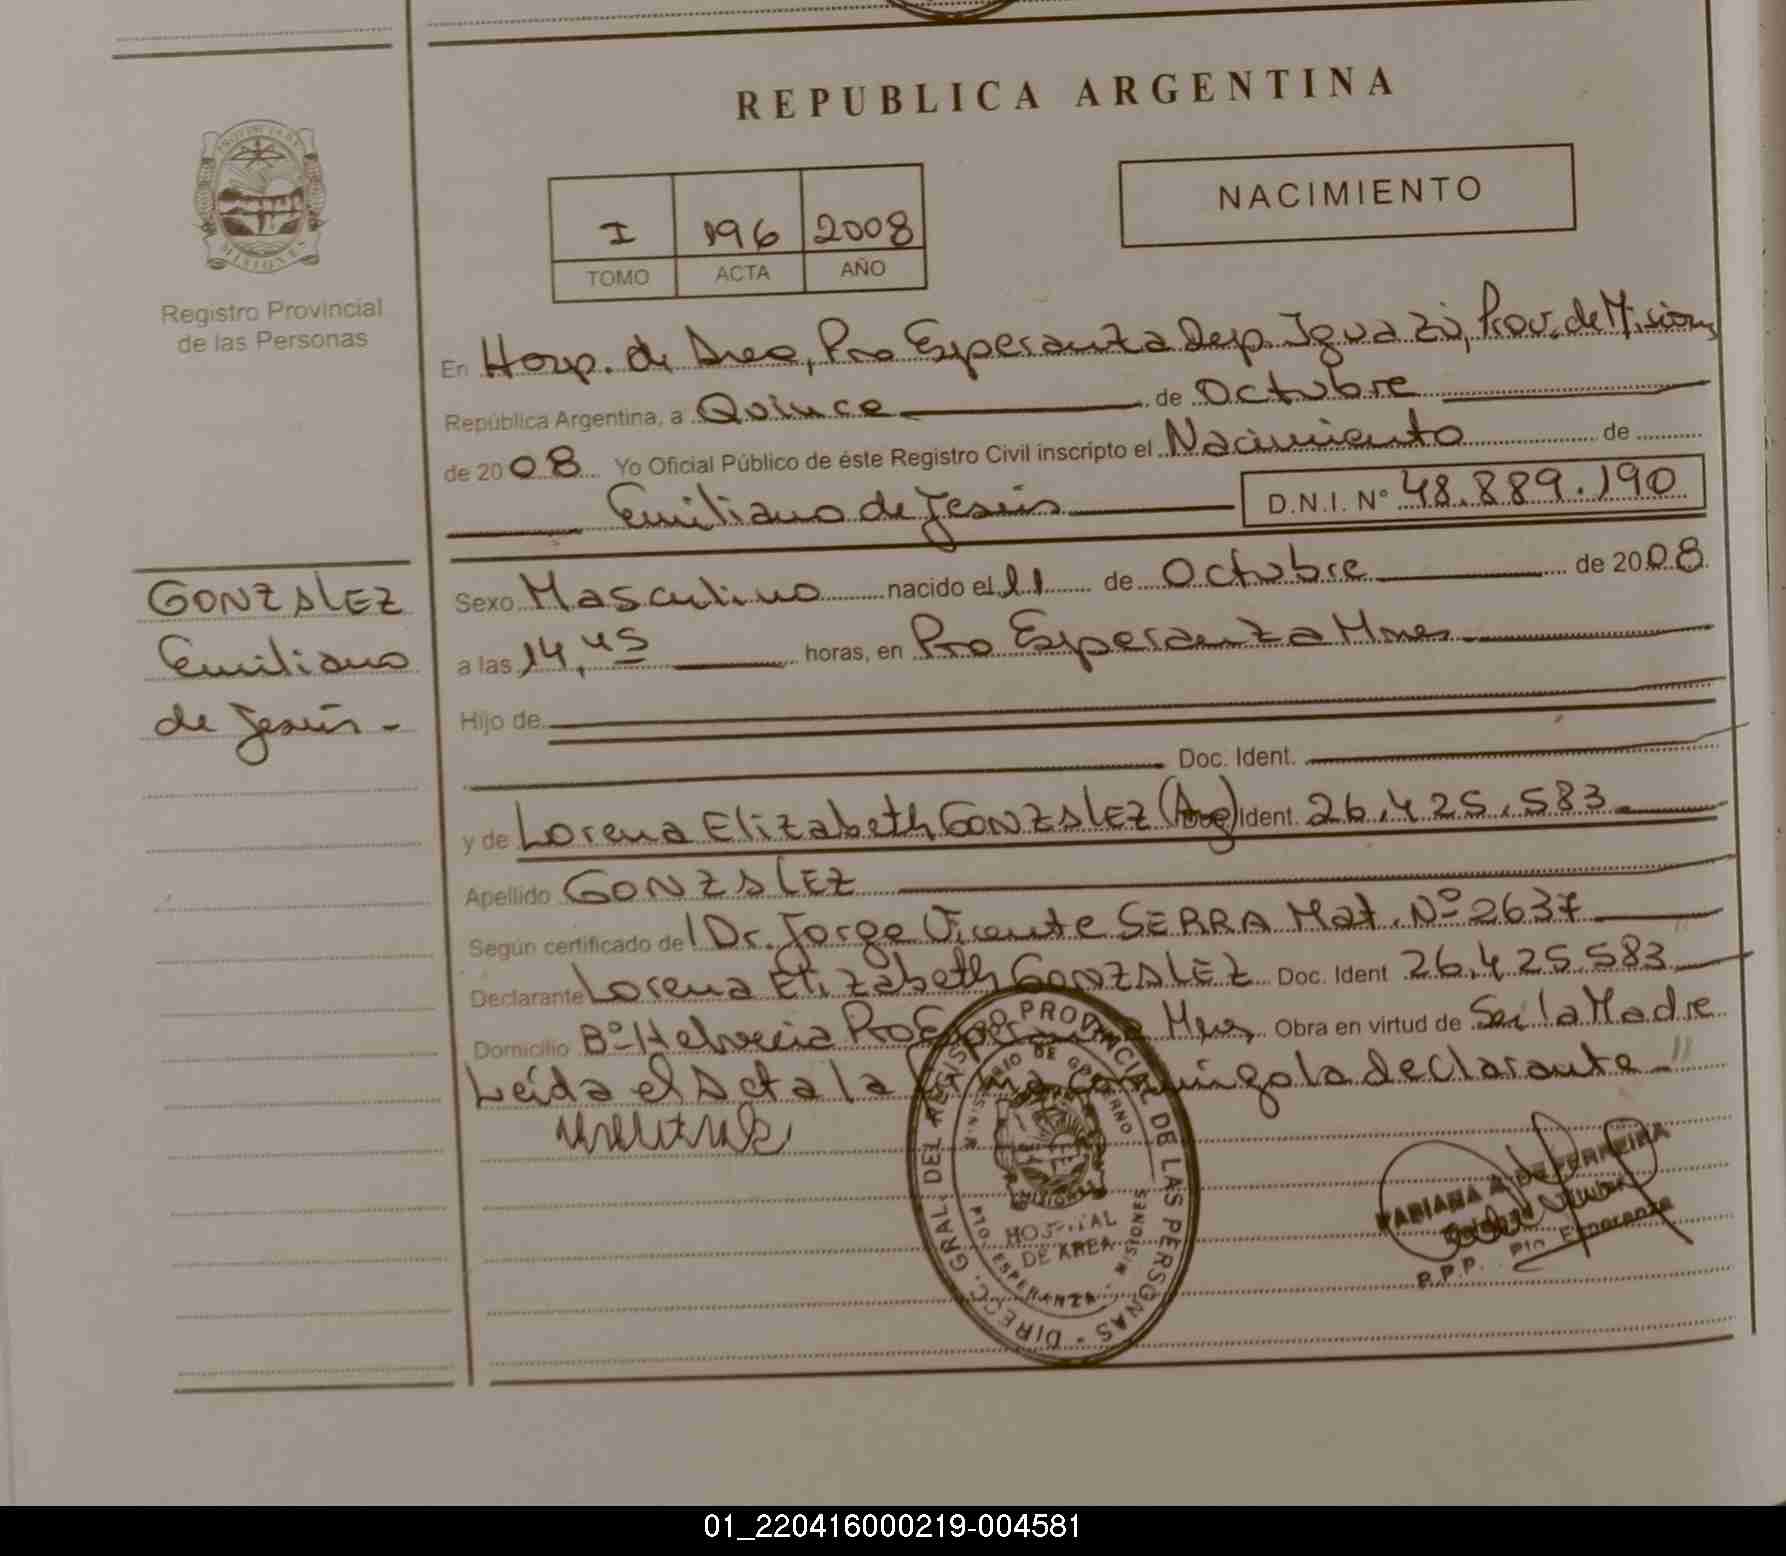 REPUBLICA ARGENTINA
NACIMIENTO
I 196 2008
TOMO ACTA AÑO
PROVINCIA DE MISIONES
Registro Provincial
de las Personas
En Hosp. de Area, Pto Esperanza Dep. Iguazú, Prov. de Misiones
República Argentina, a Quince de Octubre
de 2008 Yo Oficial Público de éste Registro Civil inscripto el Nacimiento de
Emiliano de Jesús D.N.I. Nº 48.889.190
GONZALEZ
Emiliano
de Jesús -
Sexo Masculino nacido el 11 de Octubre de 2008
a las 14,45 horas, en Pto Esperanza Mnes
Hijo de
Doc. Ident.
y de Lorena Elizabeth GONZALEZ (Arg) Ident. 26.425.583
Apellido GONZALEZ
Según certificado del Dr. Jorge Vicente SERRA Mat. Nº 2637
Declarante Lorena Elizabeth GONZALEZ Doc. Ident 26.425.583
Domicilio Bº Helvecia Pto Esperanza Mnes, Obra en virtud de Ser la Madre
Leída el Acta la firma conmigo la declarante
DIRECC. GRAL. DEL REGISTRO PROVINCIAL DE LAS PERSONAS
MINISTERIO DE GOBIERNO
MISIONES
HOSPITAL
DE AREA
PTO. ESPERANZA - MISIONES
FABIANA A. DE FERREIRA
R.P.P. Pto. Esperanza
01_220416000219-004581